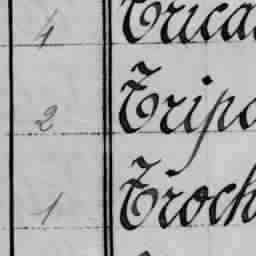 4 Trica
2 Tripo
1 Troch